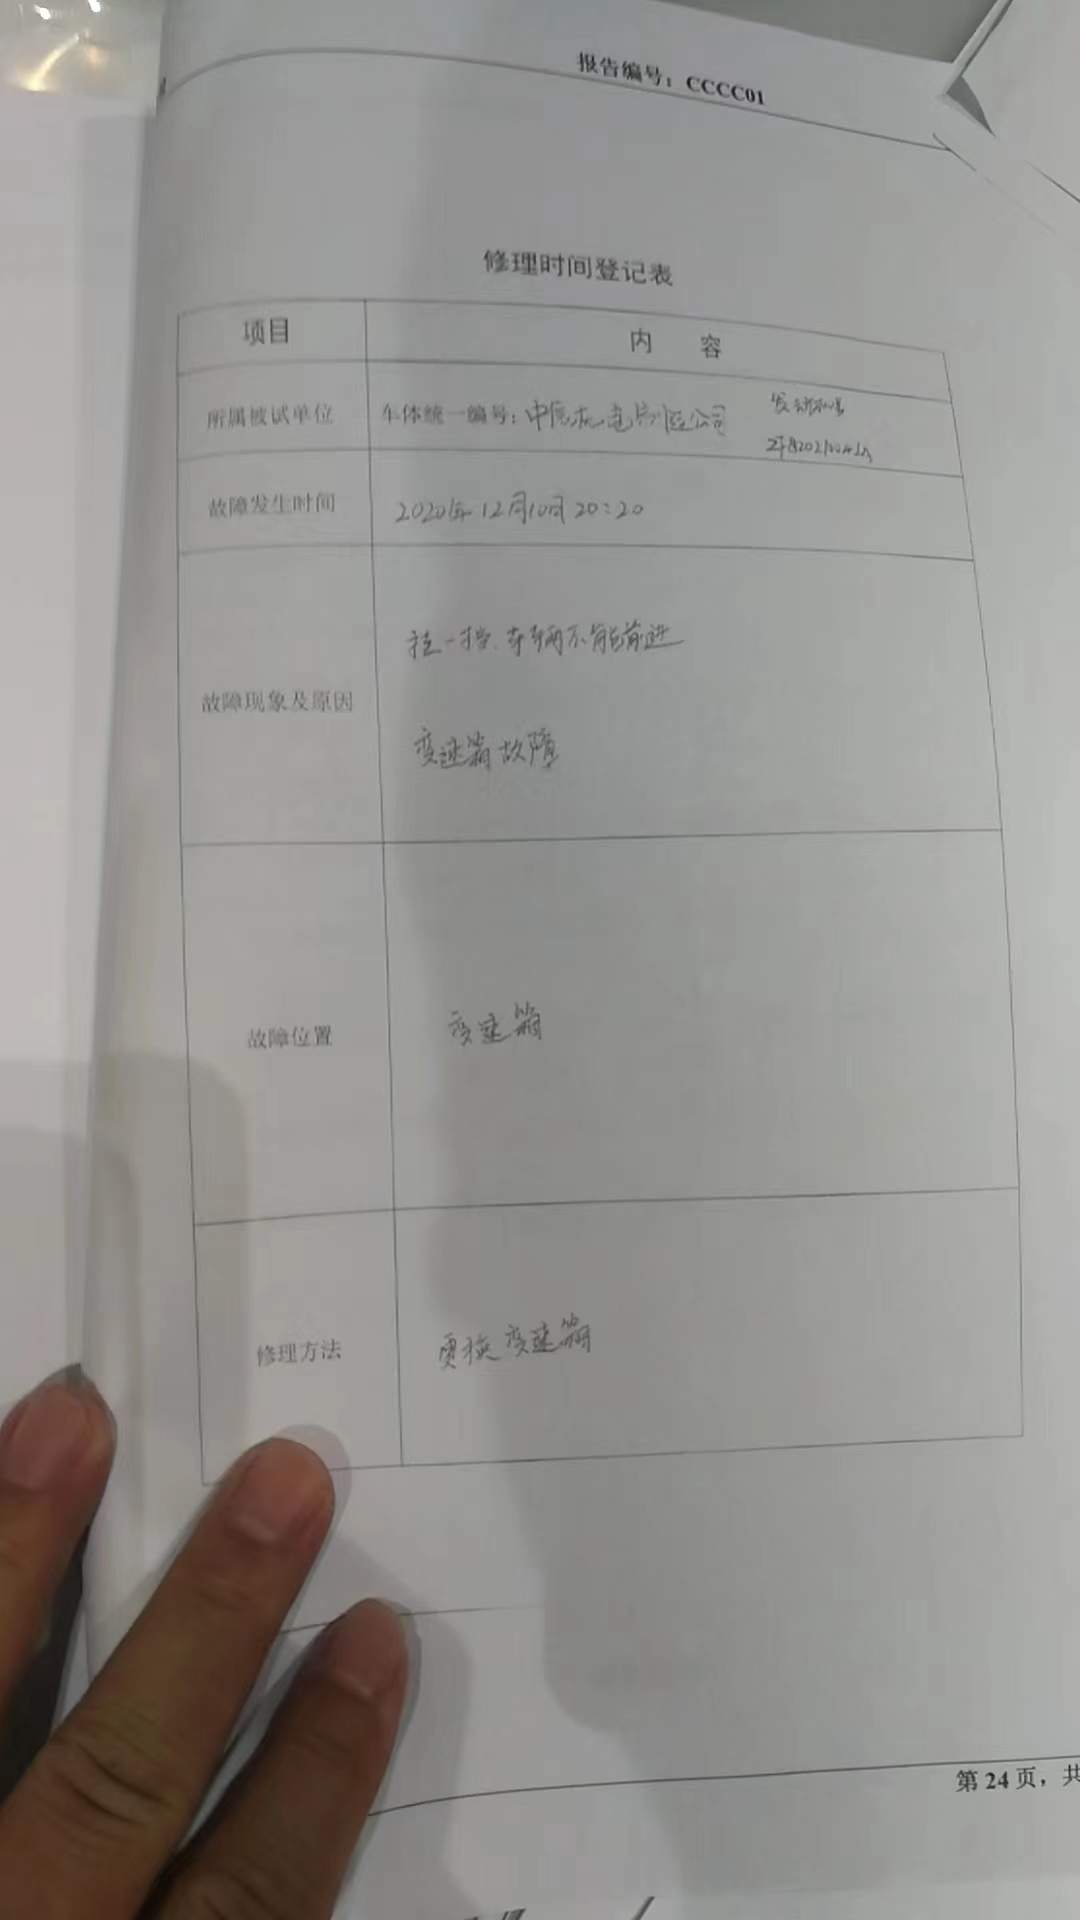 报告编号：CCCC01
修理时间登记表
项目
内 容
所属被试单位
车体统一编号：中 机电 有限公司
发动机号
故障发生时间
2020年12月10日 20:20
故障现象及原因
挂一挡.车辆不能前进
变速箱故障
故障位置
变速箱
修理方法
更换变速箱
第 24 页，共